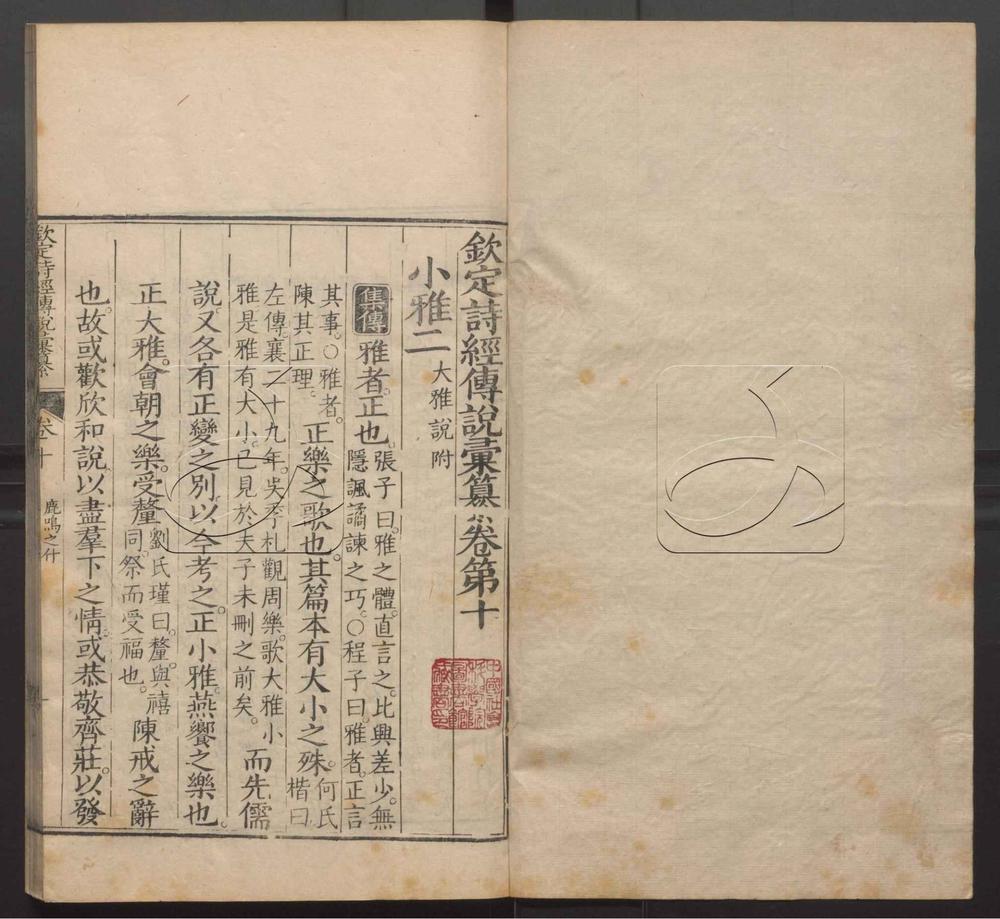 欽定詩經傳說彙纂卷第十
小雅二 大雅說附
集傳 雅者。正也。張子曰。雅之體。直言之。比興差少。無
隱諷譎諫之巧。○程子曰。雅者。正言
其事。○雅者。
陳其正理。
正樂之歌也。其篇本有大小之殊。何氏
楷曰
左傳襄二十九年。吳季札觀周樂。歌大雅小
雅。是雅有大小。已見於夫子未刪之前矣。
而先儒
說。又各有正變之別。以今考之。正小雅。燕饗之樂也。
正大雅。會朝之樂。受釐
劉氏瑾曰。釐與禧
同。祭而受福也。
陳戒之辭
也。故或歡欣和說。以盡羣下之情。或恭敬齊莊。以發
欽定詩經傳說彙纂
卷十
鹿鳴之什